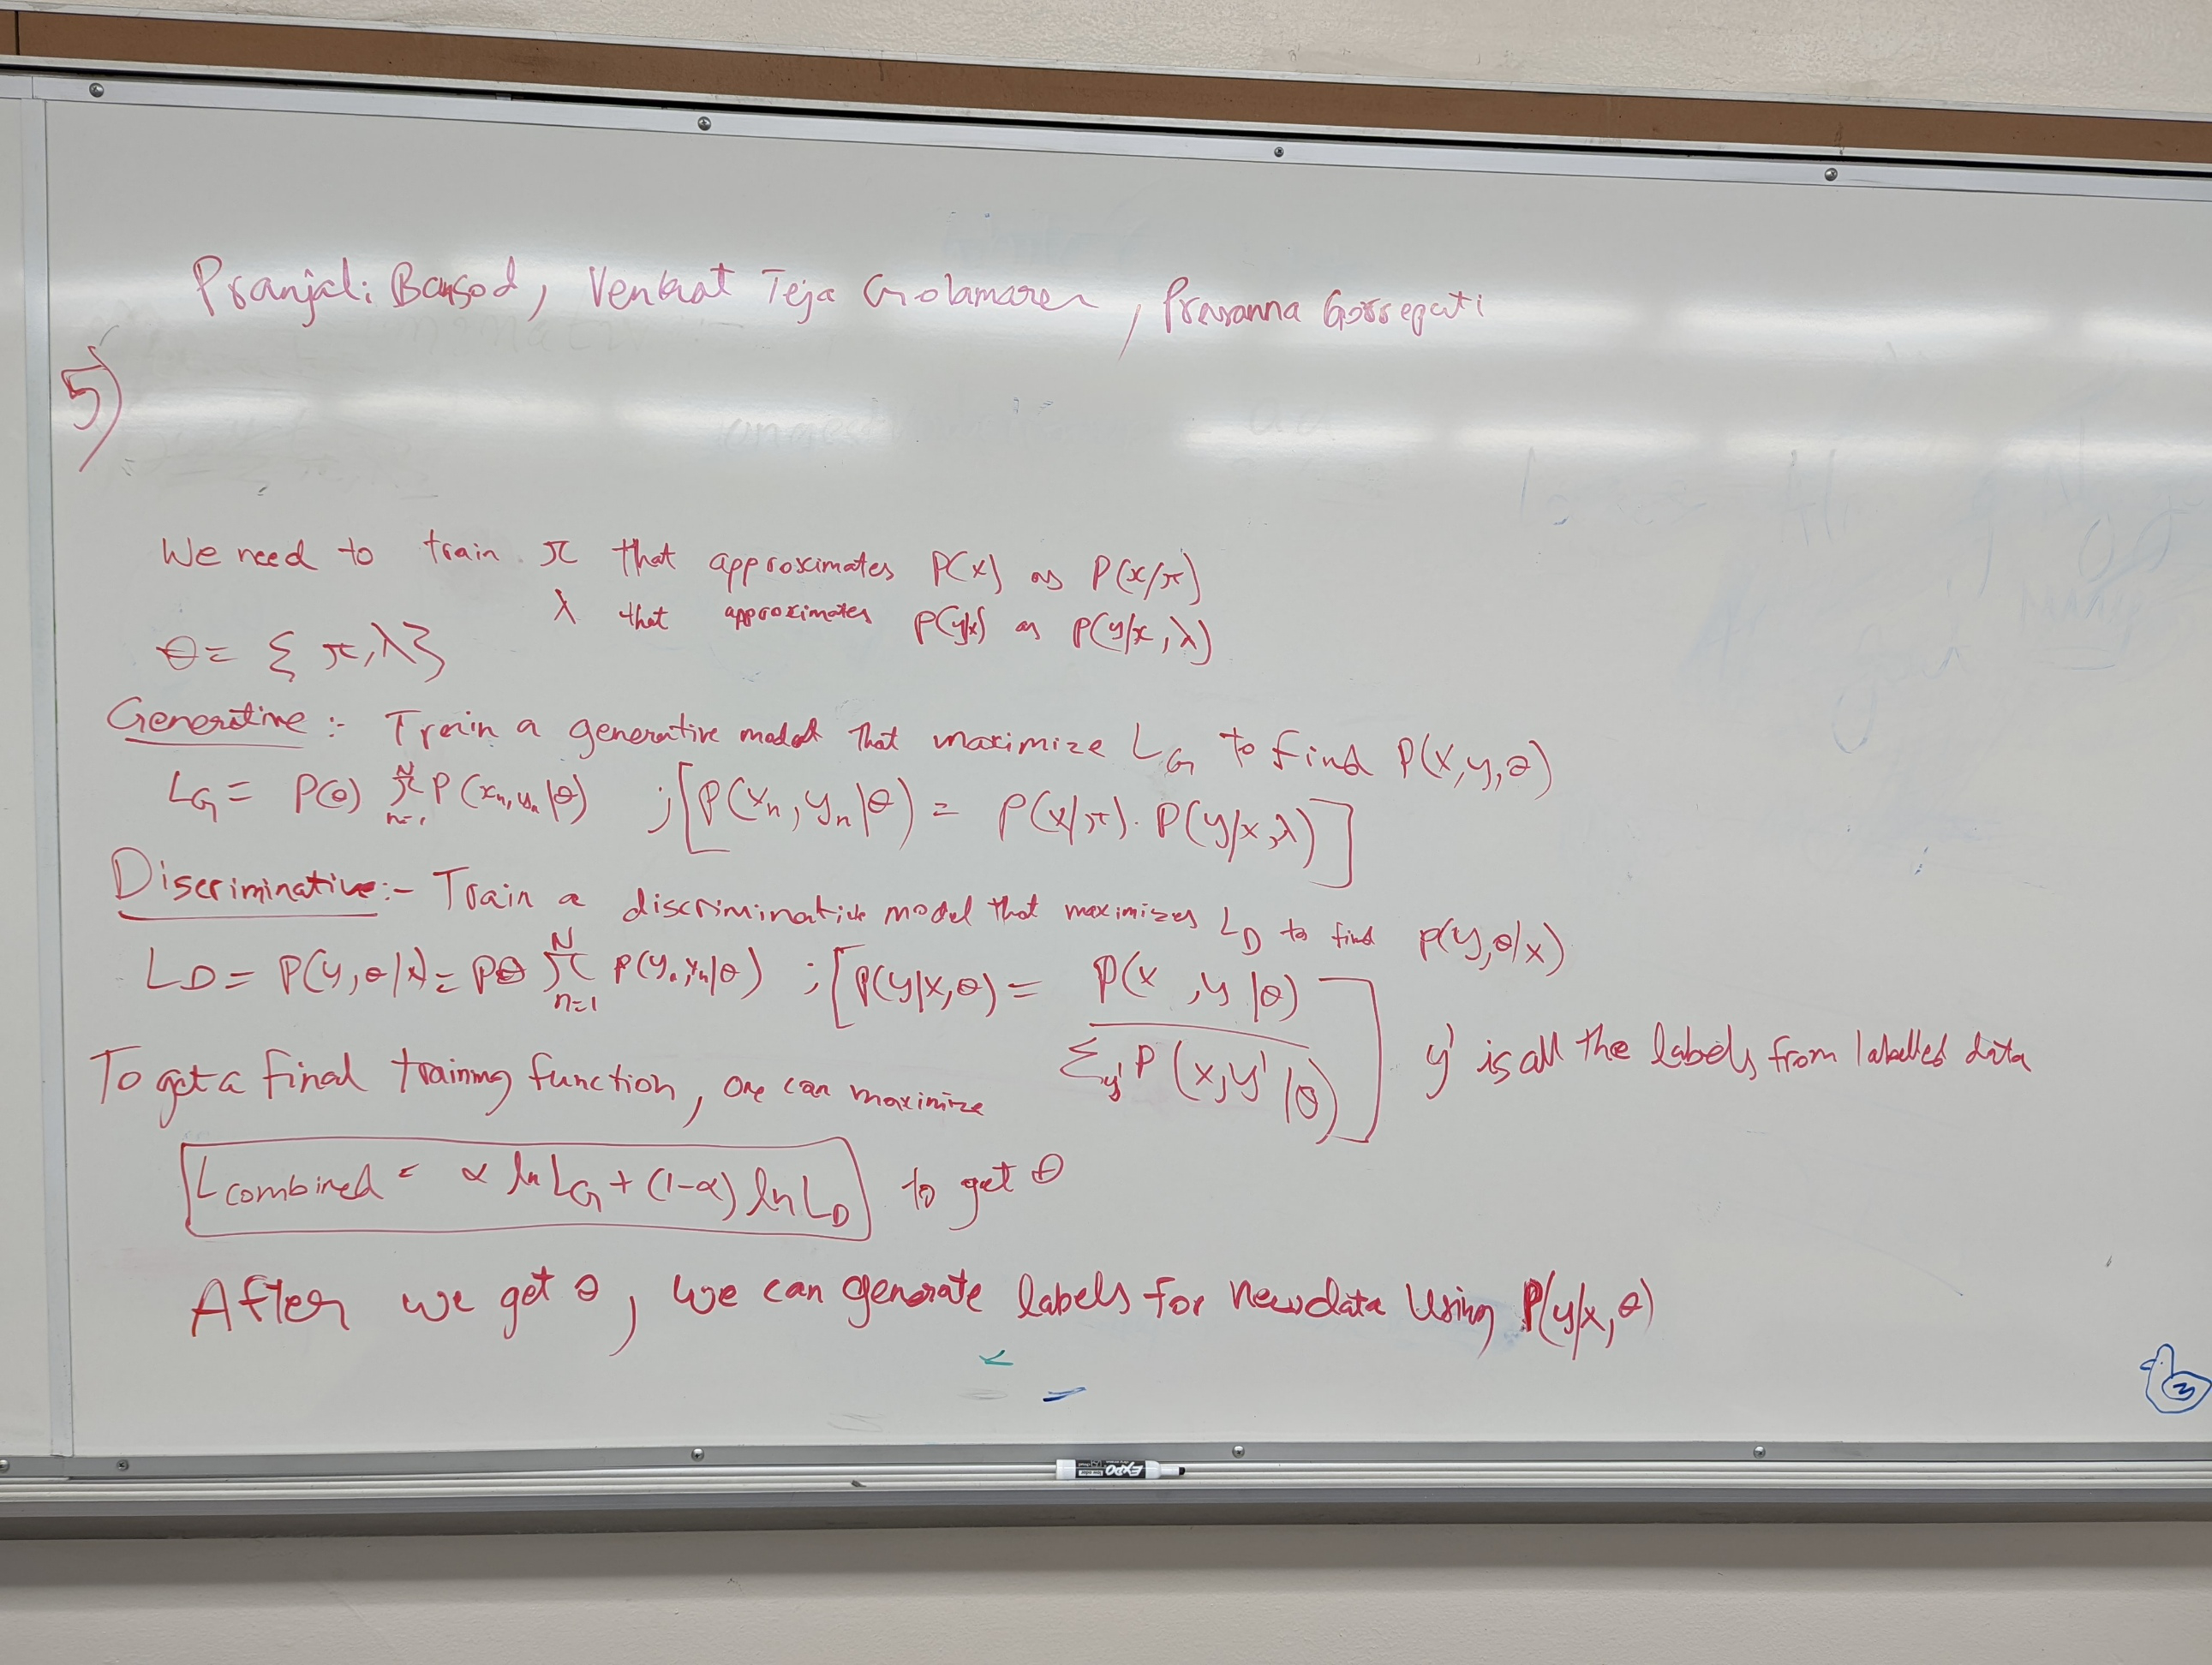 Pranjali Bansod, Venkat Teja Golamaren, Prasanna Gorrepati
5)
We need to train π that approximates P(x) as P(x/π)
λ that approximates P(y/x) as P(y/x, λ)
θ = { π, λ }
Generative :- Train a generative model that maximize L_G to find P(x,y,θ)
L_G = P(θ) π_{n=1}^{N} P(x_n, y_n|θ) ; [P(x_n, y_n|θ) = P(x/π). P(y/x,λ)]
Discriminative:- Train a discriminative model that maximizes L_D to find p(y,θ/x)
L_D = P(y,θ/x) = Pθ π_{n=1}^{N} P(y_n, x_n|θ) ; [P(y|x,θ) = P(x,y|θ) / Σ_{y'} P(x,y'|θ)] y' is all the labels from labelled data
To get a final training function, one can maximize
L combined = α ln L_G + (1-α) ln L_D to get θ
After we get θ, we can generate labels for new data Using P(y/x, θ)
3
EXPO